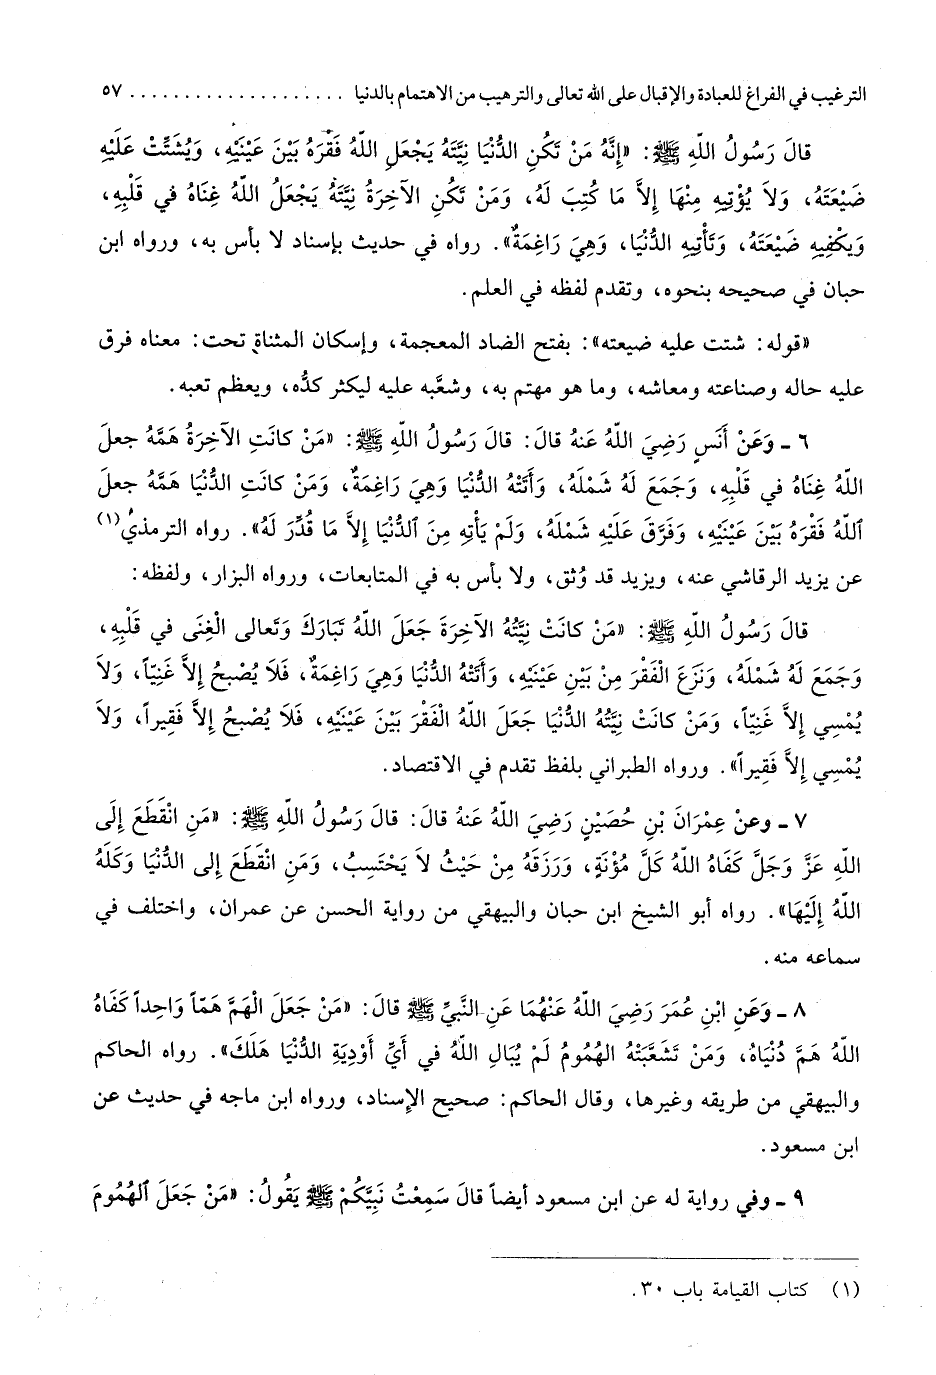 الترغيب في الفراغ للعبادة والإقبال على الله تعالى والترهيب من الاهتمام بالدنيا . . . . . . . . . . . . . . . . . . . ٥٧
قالَ رَسُولُ اللهِ ﷺ: «إِنَّهُ مَنْ تَكُنِ الدُّنْيَا نِيَّتَهُ يَجْعَلِ اللهُ فَقْرَهُ بَيْنَ عَيْنَيْهِ، وَيُشَتِّتْ عَلَيْهِ
ضَيْعَتَهُ، وَلاَ يُؤْتِيهِ مِنْهَا إِلاَّ مَا كُتِبَ لَهُ، وَمَنْ تَكُنِ الآخِرَةُ نِيَّتَهُ يَجْعَلُ اللهُ غِنَاهُ في قَلْبِهِ،
وَيَكْفِيهِ ضَيْعَتَهُ، وَتَأْتِيهِ الدُّنْيَا، وَهِيَ رَاغِمَةٌ». رواه في حديث بإسناد لا بأس به، ورواه ابن
حبان في صحيحه بنحوه، وتقدم لفظه في العلم.
«قوله: شتت عليه ضيعته»: بفتح الضاد المعجمة، وإسكان المثناة تحت: معناه فرق
عليه حاله وصناعته ومعاشه، وما هو مهتم به، وشعَّبه عليه ليكثر كدُّه، ويعظم تعبه.
٦ ـ وَعَنْ أَنَسٍ رَضِيَ اللهُ عَنهُ قالَ: قالَ رَسُولُ اللهِ ﷺ: «مَنْ كانَتِ الآخِرَةُ هَمَّهُ جعلَ
اللهُ غِنَاهُ في قَلْبِهِ، وَجَمَعَ لَهُ شَمْلَهُ، وَأَتَتْهُ الدُّنْيَا وَهِيَ رَاغِمَةٌ، وَمَنْ كانَتِ الدُّنْيَا هَمَّهُ جعلَ
ٱللهُ فَقْرَهُ بَيْنَ عَيْنَيْهِ، وَفَرَّقَ عَلَيْهِ شَمْلَهُ، وَلَمْ يَأْتِهِ مِنَ ٱلدُّنْيَا إِلاَّ مَا قُدِّرَ لَهُ». رواه الترمذيُ(١)
عن يزيد الرقاشي عنه، ويزيد قد وُثق، ولا بأس به في المتابعات، ورواه البزار، ولفظه:
قالَ رَسُولُ اللهِ ﷺ: «مَنْ كانَتْ نِيَّتُهُ الآخِرَةَ جَعَلَ اللهُ تَبَارَكَ وَتَعالى الْغِنَى في قَلْبِهِ،
وَجَمَعَ لَهُ شَمْلَهُ، وَنَزَعَ الْفَقْرَ مِنْ بَيْنِ عَيْنَيْهِ، وَأَتَتْهُ الدُّنْيَا وَهِيَ رَاغِمَةٌ، فَلَا يُصْبِحُ إِلاَّ غَنِيّاً، وَلاَ
يُمْسِي إِلاَّ غَنِيّاً، وَمَنْ كانَتْ نِيَّتُهُ الدُّنْيَا جَعَلَ اللهُ الْفَقْرَ بَيْنَ عَيْنَيْهِ، فَلَا يُصْبحُ إِلاَّ فَقِيراً، وَلاَ
يُمْسِي إِلاَّ فَقِيراً». ورواه الطبراني بلفظ تقدم في الاقتصاد.
٧ ـ وعنْ عِمْرَانَ بْنِ حُصَيْنٍ رَضِيَ اللهُ عَنهُ قالَ: قالَ رَسُولُ اللهِ ﷺ: «مَنِ انْقَطَعَ إِلَى
اللهِ عَزَّ وَجَلَّ كَفَاهُ اللهُ كَلَّ مُؤْنَةٍ، وَرَزَقَهُ مِنْ حَيْثُ لاَ يَحْتَسِبُ، وَمَنِ انْقَطَعَ إِلى الدُّنْيَا وَكَلَهُ
اللهُ إِلَيْهَا». رواه أبو الشيخ ابن حبان والبيهقي من رواية الحسن عن عمران، واختلف في
سماعه منه.
٨ ـ وَعَنِ ابْنِ عُمَرَ رَضِيَ اللهُ عَنْهُمَا عَنِ النَّبِيِّ ﷺ قالَ: «مَنْ جَعَلَ الْهَمَّ هَمّاً وَاحِداً كَفَاهُ
اللهُ هَمَّ دُنْيَاهُ، وَمَنْ تَشَعَّبَتْهُ الهُمُومُ لَمْ يُبَالِ اللهُ في أَيِّ أَوْدِيَةِ الدُّنْيَا هَلَكَ». رواه الحاكم
والبيهقي من طريقه وغيرها، وقال الحاكم: صحيح الإسناد، ورواه ابن ماجه في حديث عن
ابن مسعود.
٩ ـ وفي رواية له عن ابن مسعود أيضاً قالَ سَمِعْتُ نَبِيَّكُمْ ﷺ يَقُولُ: «مَنْ جَعَلَ ٱلهُمُومَ
(١) كتاب القيامة باب ٣٠.